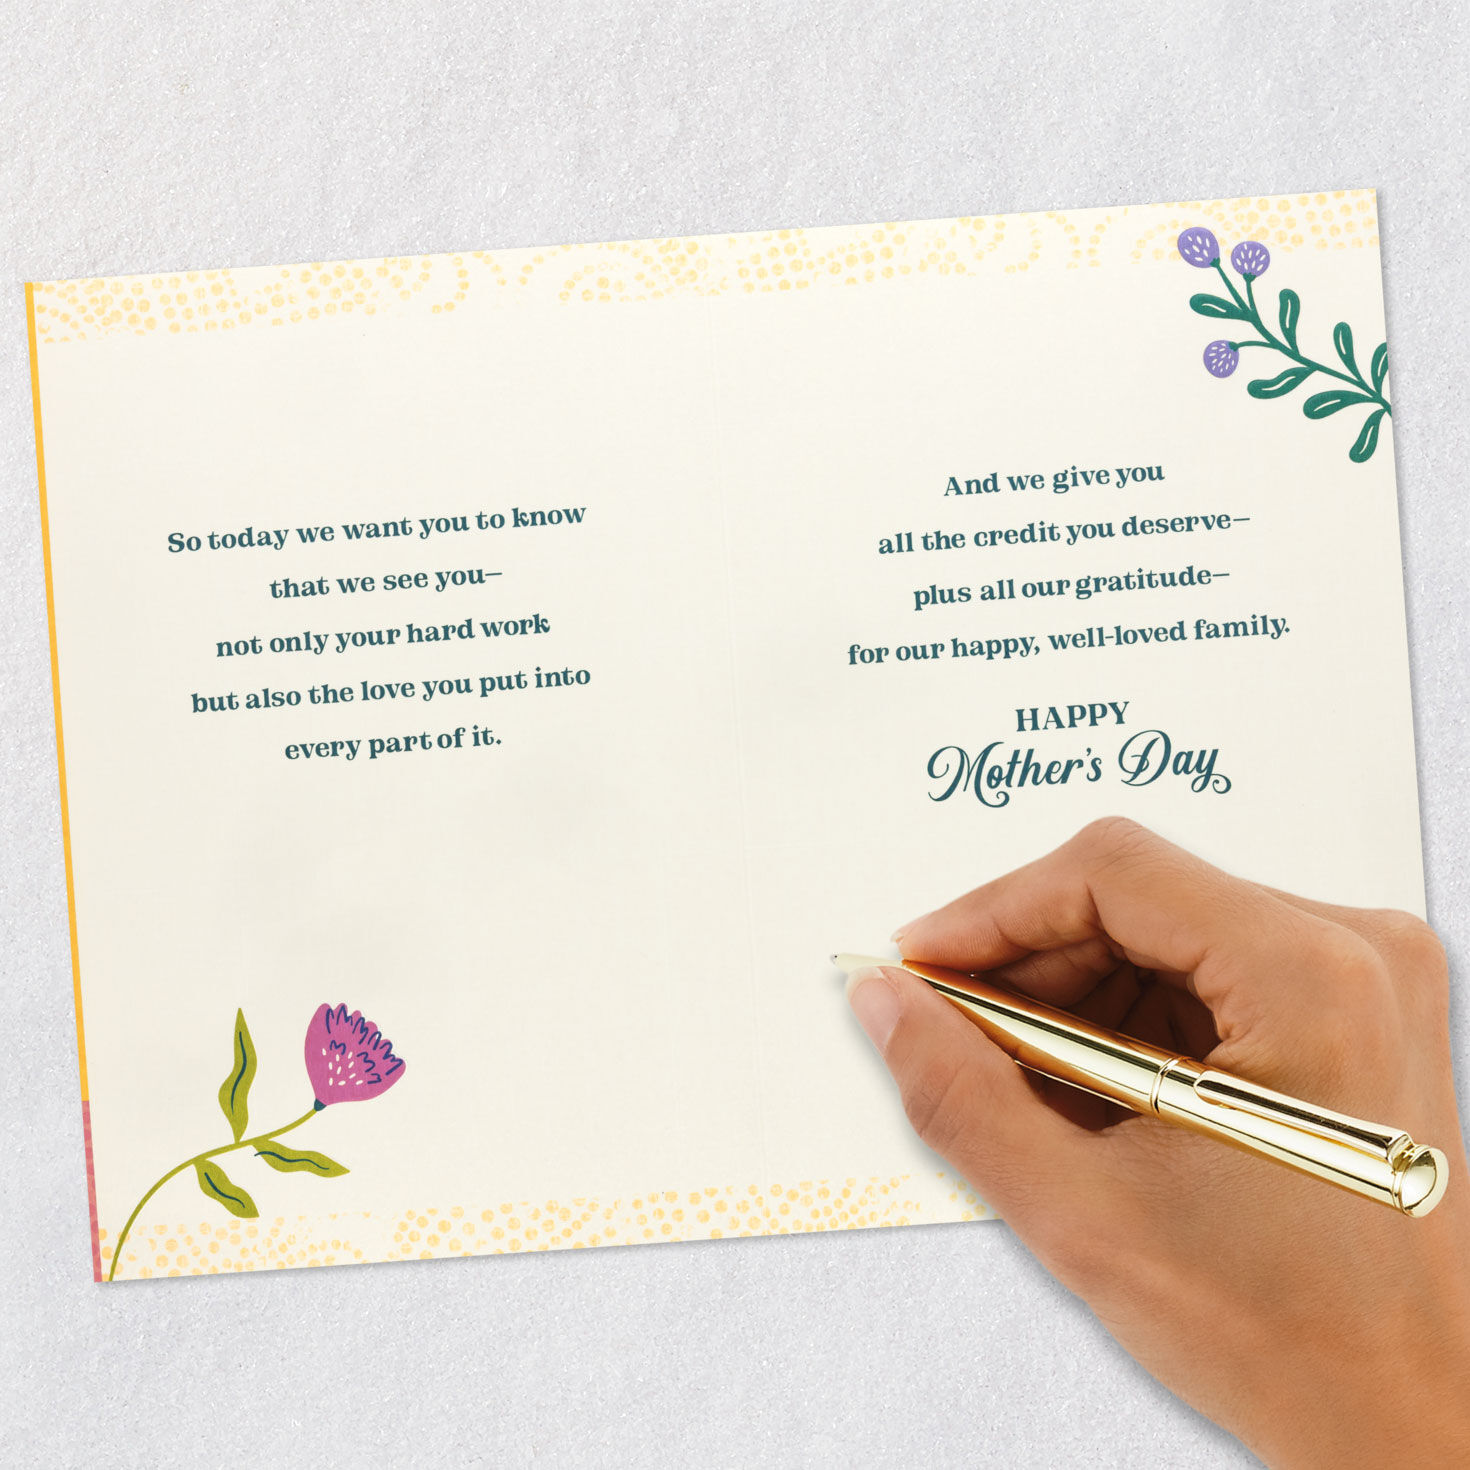 So today we want you to know
that we see you—
not only your hard work
but also the love you put into
every part of it.
And we give you
all the credit you deserve—
plus all our gratitude—
for our happy, well-loved family.
HAPPY
Mother's Day